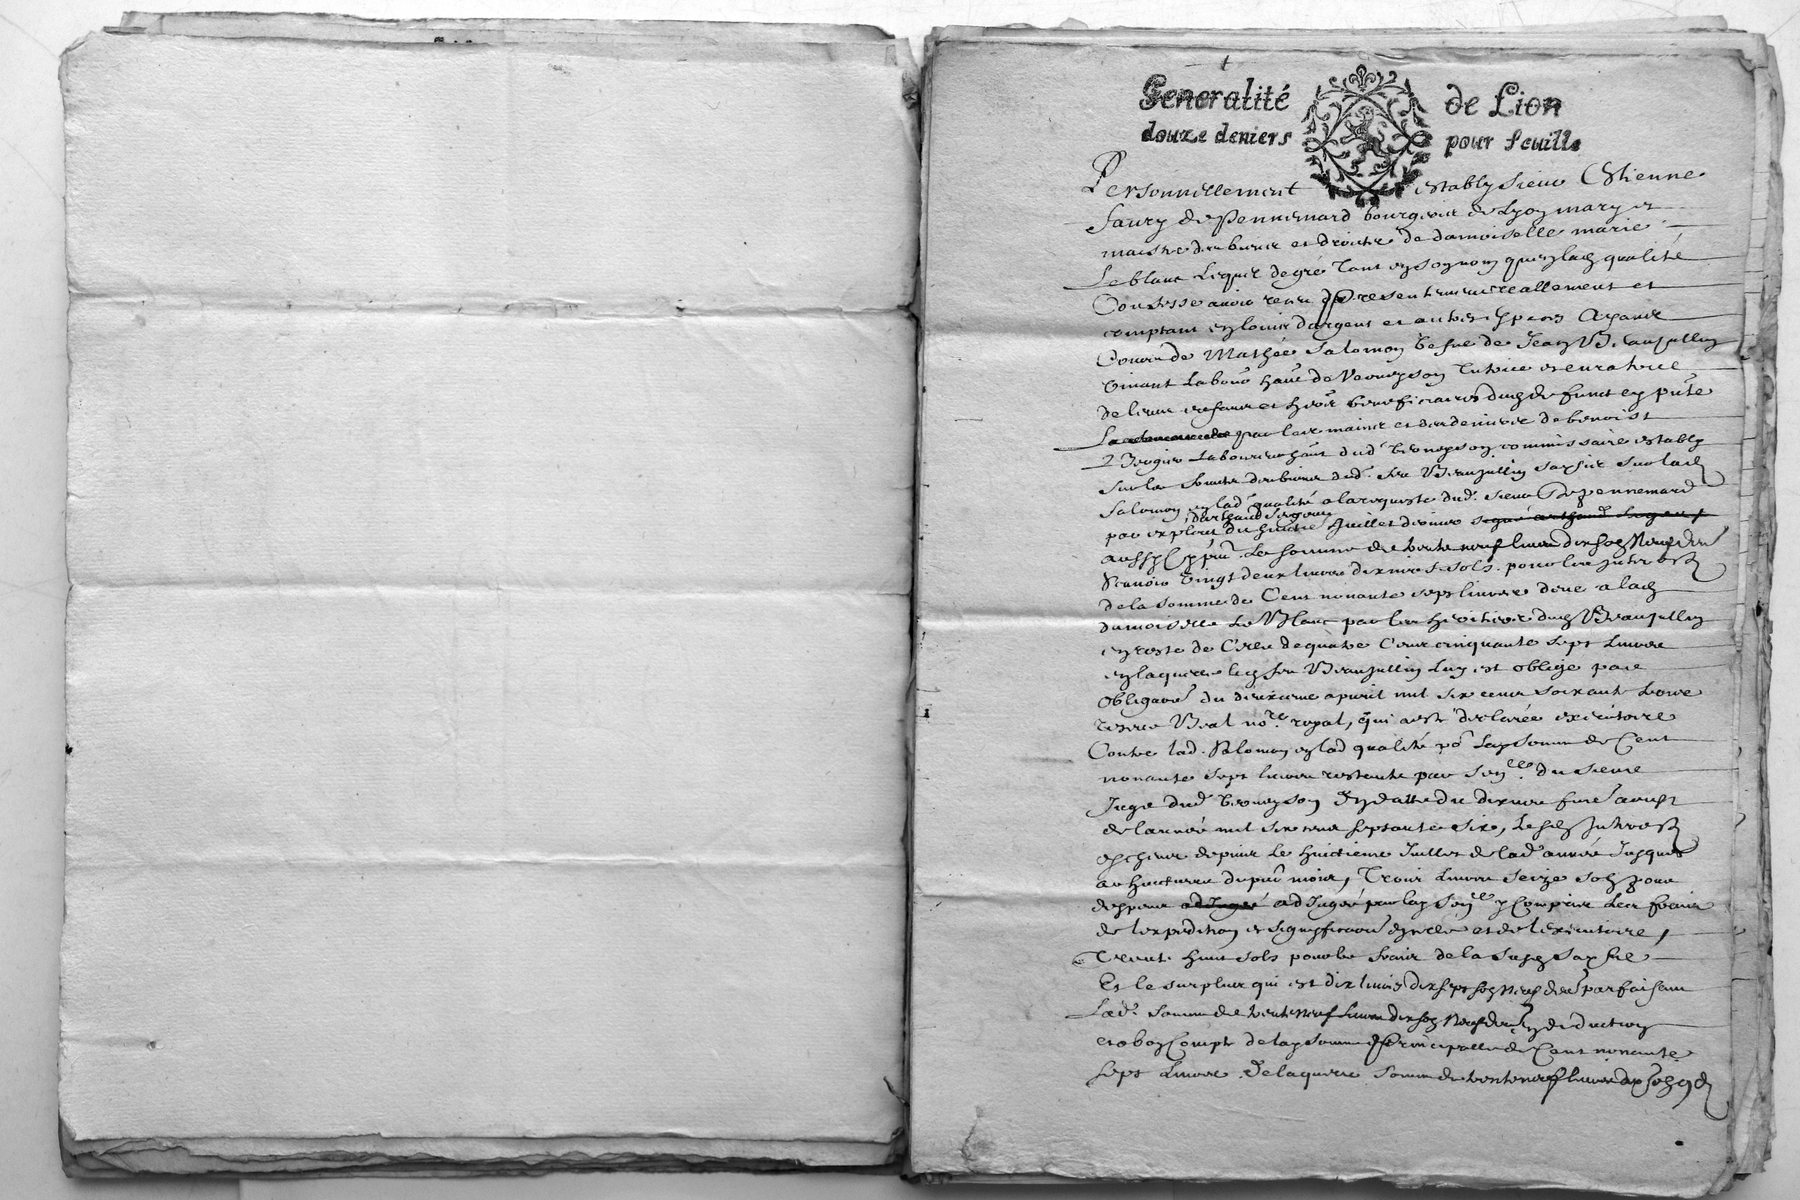 Generalité de Lion
douze deniers pour feuille
Personnellement estably sieur Estienne
Faury de Pennemard bourgeois de Lyon mary et
maistre des biens et droits de damoiselle marie
Le blanc Lequel de gré tant en son nom qu'en lad qualité
Confesse avoir receu presentement reallement et
comptant en louis d'argent et autres especes ayant
Cours de Mathée Salomon vefve de Jean Beaujullin
vivant Labour hant de Verneyson tutrice et curatrice
de leurs enfans et beneficiaires dud deffunct
par les mains et des deniers de benoist
Labour hant dud verneyson commissaire estably
sur les fruits des biens dud feu Beaujullin saysis sur lad
Salomon en lad qualité a la requeste dud sieur de Pennemard
par exploit du huictie Juillet dernier
La somme de trente neuf livres dix solz neuf den
Scavoir vingt deux livres dix neuf sols pour les interestz
de la somme de Cent nonante sept livres deue a lad
damoiselle Le Blanc par les heritiers dud Beaujullin
en reste de Celle de quatre Cent cinquante sept Livres
en laquelle led feu Beaujullin luy est obligé par
obligaon du dixieme apvril mil six cens soixante
Beal nore royal, qui a esté declarée executoire
Contre lad Salomon en lad qualité po lad Somme de Cent
nonante sept livres restante par sence du sieur
Juge dud verneyson en datte du dix neufie aoust
de l'année mil six cens septante six, Lesd Interestz
escheus depuis le huictieme Juillet de lad année Jusques
au huictieme du pnt mois, Trois Livres seize solz pour
despens adjugé adjugés par lad sence y Compris les frais
de l'expedition et signiffication d'icelle et de l'executoire,
Trente huit sols pour les frais de la susd saysie
Et le surplus qui est dix livres dix sept solz neuf den parfaisant
Lad Somme de trente neuf Livres dix solz neuf den en deduction
et a bon Compte de lad somme Principalle de Cent nonante
sept Livres De laquelle Somme de trente neuf livres dix solz 9 d